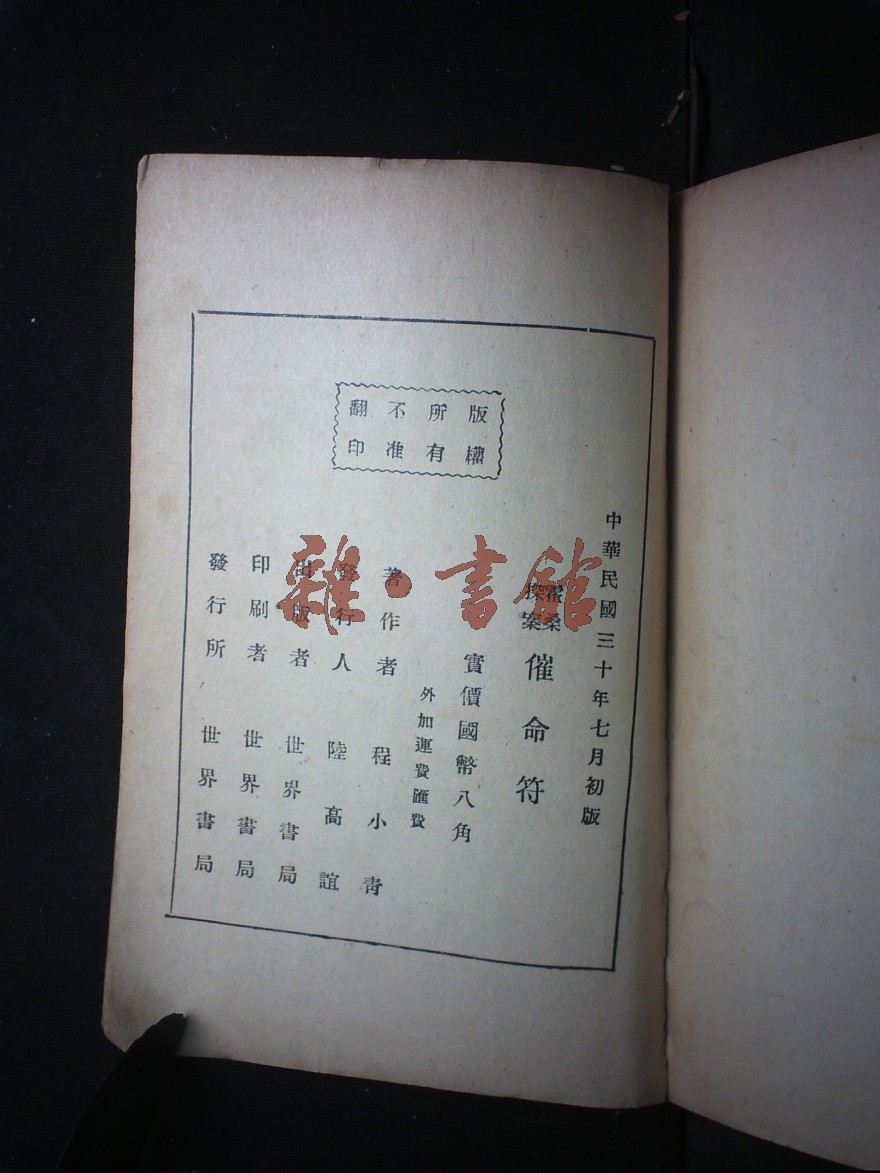 版權所有不准翻印
中華民國三十年七月初版
霍桑探案
催命符
實價國幣八角
外加運費匯費
著作者 程小青
發行人 陸高誼
出版者 世界書局
印刷者 世界書局
發行所 世界書局
雜·書館